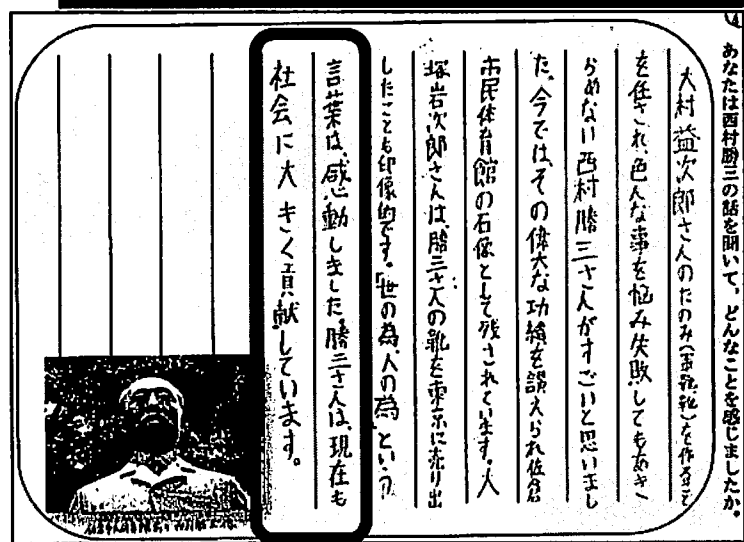 あなたは西村勝三の話を聞いて、どんなことを感じましたか。
大村益次郎さんのたのみ(軍靴靴)を作ること
を任され、色んな事を悩み失敗してもあき
らめない西村勝三さんがすごいと思いまし
た。今では、その偉大な功績を讃えられ佐倉
市民体育館の石像として残されています。人
塚岩次郎さんは、勝三さんの靴を東京に売り出
したことも印象的です。「世の為、人の為」という
言葉は、感動しました。勝三さんは、現在も
社会に大きく貢献しています。